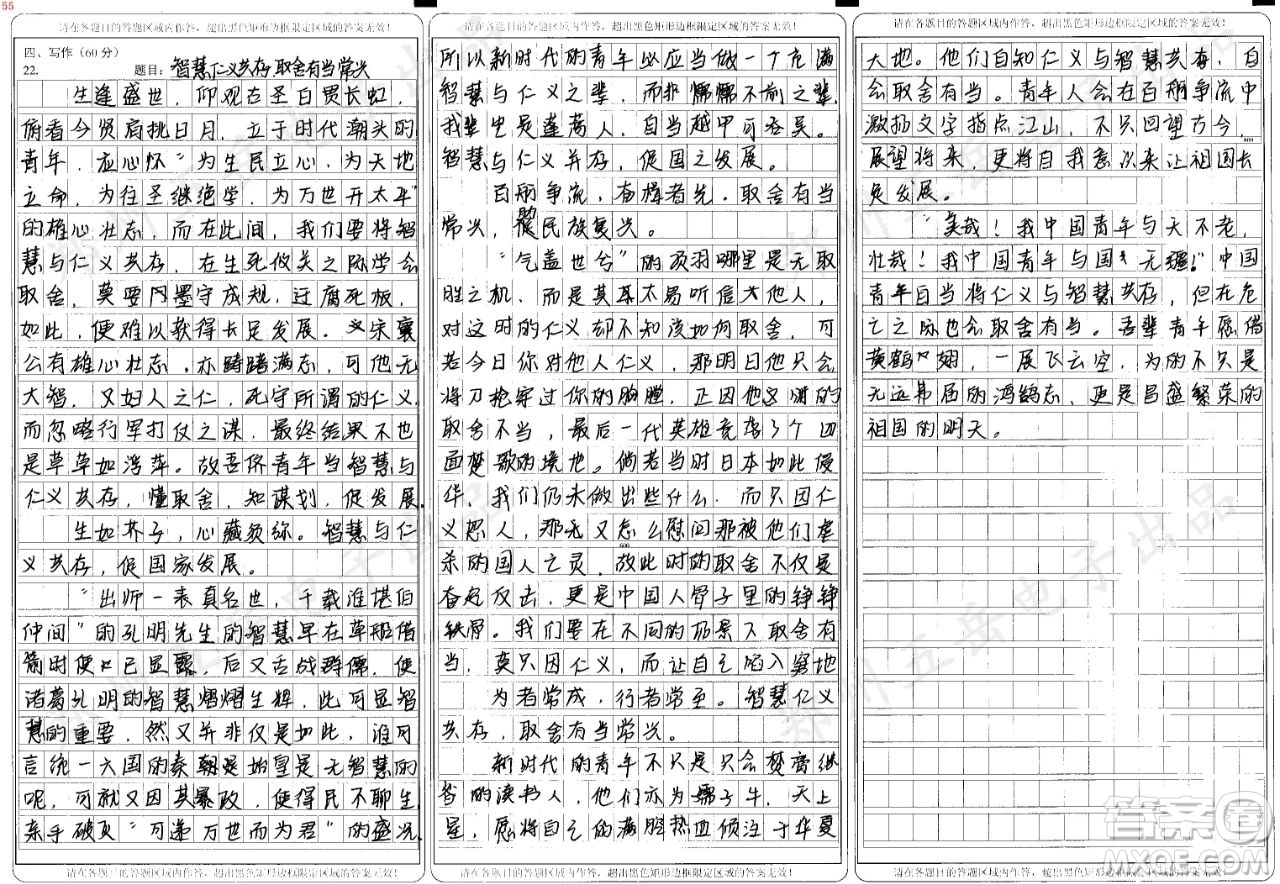 55
请在各题目的答题区域内作答，超出黑色矩形边框限定区域的答案无效！
四、写作（60分）
22.
题目：智慧仁义共存 取舍有当常兴
生逢盛世，仰观古圣白贯长虹，
俯看今贤肩挑日月，立于时代潮头的
青年，应心怀“为生民立心，为天地
立命，为往圣继绝学，为万世开太平”
的雄心壮志，而在此间，我们要将智
慧与仁义共存，在生死攸关之际学会
取舍，莫要墨守成规，迂腐死板，
如此，便难以获得长足发展。宋襄
公有雄心壮志，亦踌躇满志，可他无
大智，又妇人之仁，死守所谓的仁义，
而忽略行军打仗之谋，最终结果不也
是草草如浮萍。故吾侪青年当智慧与
仁义共存，懂取舍，知谋划，促发展。
生如芥子，心藏须弥。智慧与仁
义共存，促国家发展。
“出师一表真名世，千载谁堪伯
仲间”的孔明先生的智慧早在草船借
箭时便已显露，后又舌战群儒，使
诸葛孔明的智慧熠熠生辉，此可显智
慧的重要，然又并非仅是如此，谁可
言统一六国的秦朝是始皇是无智慧的
呢，可就又因其暴政，使得民不聊生，
亲手破灭“可递万世而为君”的盛况，
请在各题目的答题区域内作答，超出黑色矩形边框限定区域的答案无效！
请在各题目的答题区域内作答，超出黑色矩形边框限定区域的答案无效！
所以新时代的青年必应当做一个充满
智慧与仁义之辈，而非懦懦不前之辈，
我辈岂是蓬蒿人，自当越甲可吞吴。
智慧与仁义并存，促国之发展。
百舸争流，奋楫者先，取舍有当
常兴，民族复兴。
“气盖世兮”的项羽哪里是无取
胜之机，而是其耳太易听信他人，
对这时的仁义却不知该如何取舍，可
若今日你对他人仁义，那明日他只会
将刀枪穿过你的胸膛，正因他这
取舍不当，最后一代英雄竟落了个四
面楚歌的境地。倘若当时日本如此侵
华，我们仍未做出些什么，而只因仁
义忍人，那无又怎么慰问那被他们虐
杀的国人之灵，故此时的取舍不仅是
奋起反击，更是中国人骨子里的铮铮
铁骨。我们要在不同的场景下取舍有
当，莫只因仁义，而让自己陷入窘地
为者常成，行者常至。智慧仁义
共存，取舍有当常兴。
新时代的青年不只是只会焚膏继
晷的读书人，他们亦为孺子牛，天上
星，愿将自己的满腔热血倾注于华夏
请在各题目的答题区域内作答，超出黑色矩形边框限定区域的答案无效！
请在各题目的答题区域内作答，超出黑色矩形边框限定区域的答案无效！
大地。他们自知仁义与智慧共存，自
会取舍有当。青年人会在百舸争流中
激扬文字指点江山，不只回望古今，
展望将来，更将自我意以来让祖国长
足发展。
“美哉！我中国青年与天不老，
壮哉！我中国青年与国无疆！”中国
青年自当将仁义与智慧共存，但在危
亡之际也会取舍有当。吾辈青年愿借
黄鹤翅，一展飞云空，为的不只是
无远弗届的鸿鹄志，更是昌盛繁荣的
祖国的明天。
请在各题目的答题区域内作答，超出黑色矩形边框限定区域的答案无效！
郑州五岳电子出品
答案圈
MXQE.COM